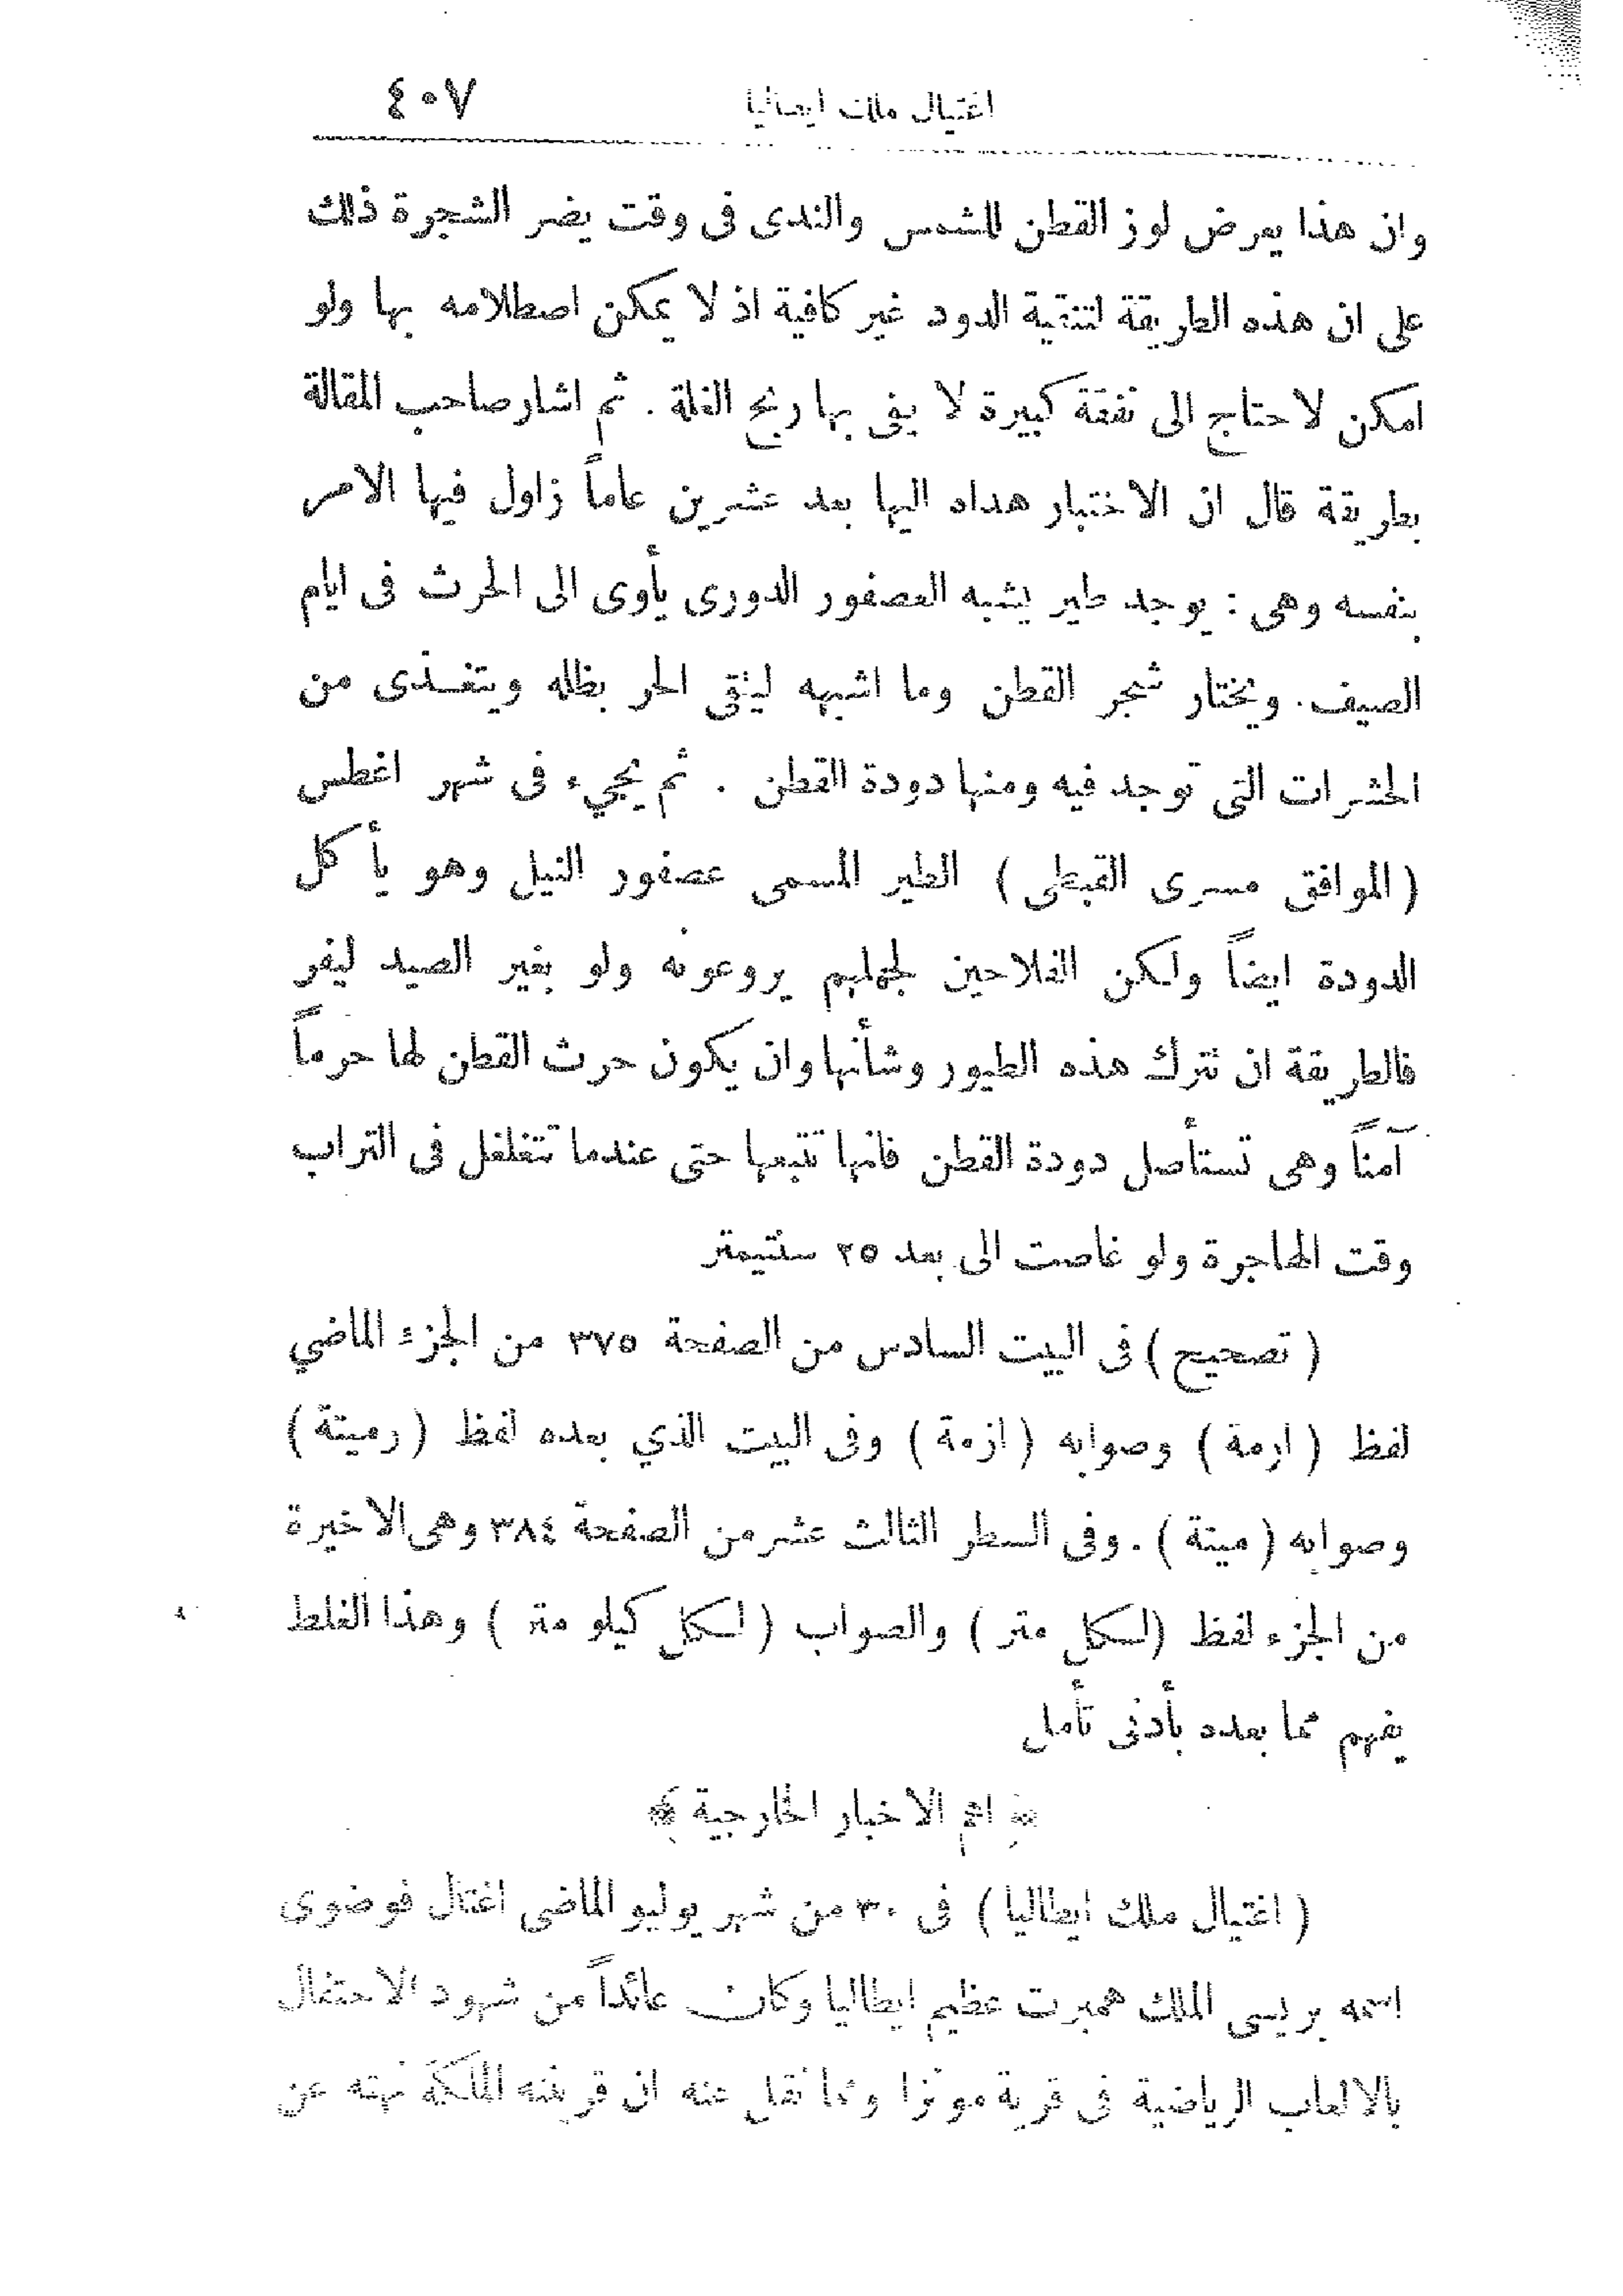 اغتيال ملك ايطاليا ٤٠٧
وان هذا يعرض لوز القطن للشمس والندى فى وقت يضر الشجرة ذلك
على ان هذه الطريقة لتنقية الدود غير كافية اذ لا يمكن اصطلامه بها ولو
امكن لاحتاج الى نفقة كبيرة لا يفى بها ربح الغلة . ثم اشار صاحب المقالة
بطريقة قال ان الاختبار هداه اليها بعد عشرين عاماً زاول فيها الامر
بنفسه وهى : يوجد طير يشبه العصفور الدورى يأوى الى الحرث فى ايام
الصيف . ويختار شجر القطن وما اشبهه ليتقى الحر بظله ويتغذى من
الحشرات التى توجد فيه ومنها دودة القطن . ثم يجيء فى شهر اغطس
( الموافق مسرى القبطى ) الطير المسمى عصفور النيل وهو يأكل
الدودة ايضاً ولكن الفلاحين لجهلهم يروعونه ولو بغير الصيد ليفر
فالطريقة ان تترك هذه الطيور وشأنها وان يكون حرث القطن لها حرماً
آمناً وهى تستأصل دودة القطن فانها تتبعها حتى عندما تتغلغل فى التراب
وقت الهاجرة ولو غاصت الى بعد ٢٥ سنتيمتر
( تصحيح ) فى البيت السادس من الصفحة ٣٧٥ من الجزء الماضي
لفظ ( ارمة ) وصوابه ( ازمة ) وفى البيت الذي بعده لفظ ( رميتة )
وصوابه ( ميتة ) . وفى السطر الثالث عشر من الصفحة ٣٨٤ وهى الاخيرة
من الجزء لفظ ( لكل متر ) والصواب ( لكل كيلو متر ) وهذا الغلط
يفهم مما بعده بأدنى تأمل
﴿ اهم الاخبار الخارجية ﴾
( اغتيال ملك ايطاليا ) فى ٣٠ من شهر يوليو الماضى اغتال فوضوى
اسمه بريسى الملك همبرت عظيم ايطاليا وكان عائداً من شهود الاحتفال
بالالعاب الرياضية فى قرية مونزا ومما نقل عنه ان قرينته الملكة نهته عن